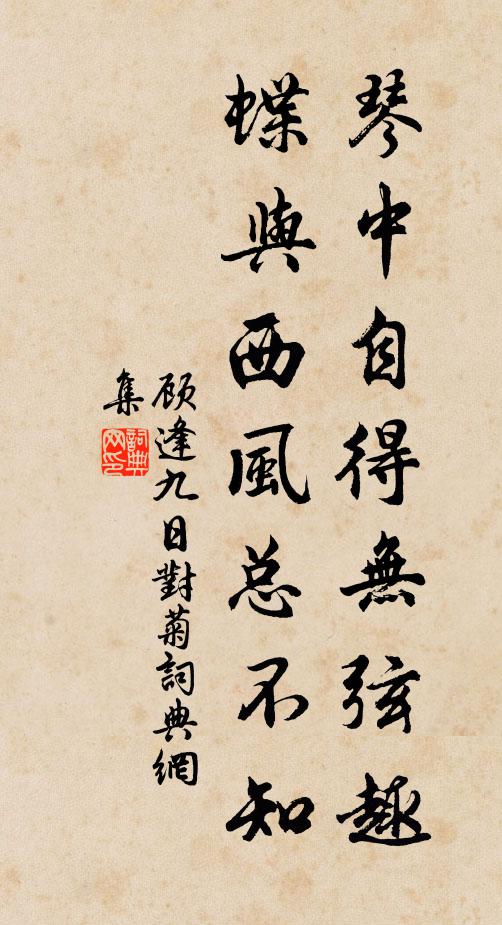 琴中自得無弦趣
蝶與西風总不知
顾逢九日對菊詞典網
集
詞典
网印